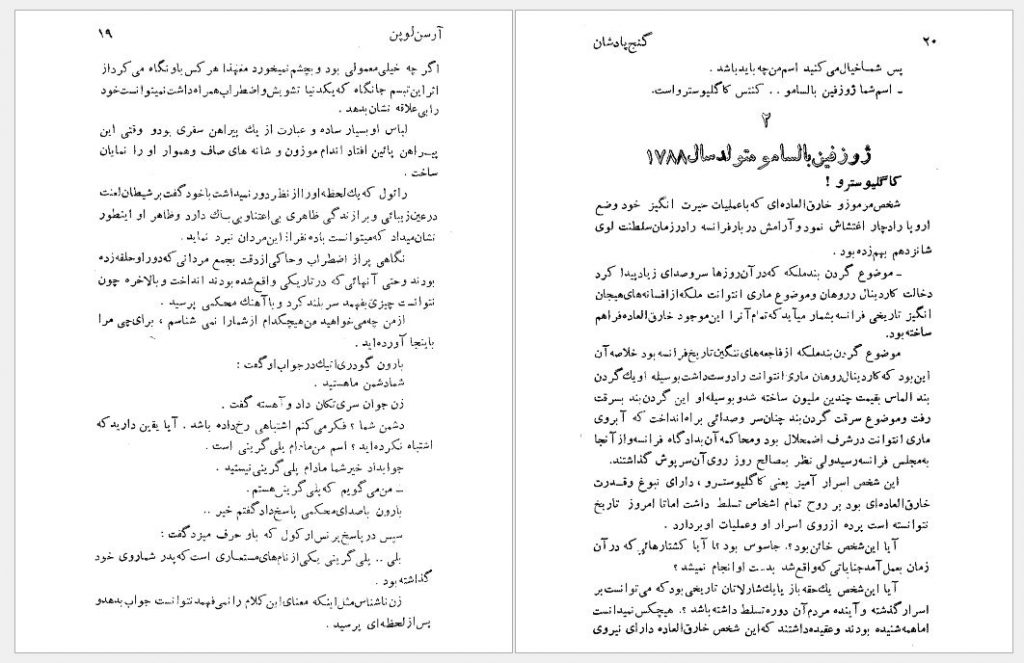 آرسن لوپن ۱۹
اگر چه خیلی معمولی بود و بچشم نمیخورد معهذا هر کس باو نگاه می کرد از
اثر این تبسم جانگاه که یکدنیا تشویش و اضطراب همراه داشت نمیتوانست خود
را بی علاقه نشان بدهد .
لباس او بسیار ساده و عبارت از یك پیراهن سفری بود و وقتی این
پیراهن پائین افتاد اندام موزون و شانه های صاف و هموار او را نمایان
ساخت .
رائول که یك لحظه او را از نظر دور نمیداشت با خود گفت بر شیطان لعنت
در عین زیبائی و برازندگی ظاهری بی اعتنا و بی باك دارد و ظاهر او اینطور
نشان میداد که میتوانست با ده نفر از این مردان نبرد نماید .
نگاهی پر از اضطراب و حاکی از دقت بجمع مردانی که دور او حلقه زده
بودند و حتی آنهائی که در تاریکی واقع شده بودند انداخت و بالاخره چون
نتوانست چیزی بفهمد سر بلند کرد و با آهنك محکمی پرسید .
از من چه می خواهید من هیچکدام از شما را نمی شناسم ، برای چی مرا
باینجا آورده اید .
بارون گودری اتیك در جواب او گفت :
شما دشمن ما هستید .
زن جوان سری تکان داد و آهسته گفت .
دشمن شما ؟ فکر می کنم اشتباهی رخ داده باشد . آیا یقین دارید که
اشتباه نکرده اید ؟ اسم من مادام پلی گرینی است .
جوابداد خیر شما مادام پلی گرینی نیستید .
ـ من می گویم که پلی گرینی هستم .
بارون با صدای محکمی پاسخ داد گفتم خیر ..
سپس در پاسخ پرنس از کول که باو حرف میزد گفت :
بلی .. پلی گرینی یکی از نام های مستعاری است که پدر شما روی خود
گذاشته بود .
زن ناشناس مثل اینکه معنای این کلام را نمی فهمد نتوانست جواب بدهد و
پس از لحظه ای پرسید .
گنج پادشان ۲۰
پس شما خیال می کنید اسم من چه باید باشد .
ـ اسم شما ژوزفین بالسامو .. کنتس کاگلیوستر و است .
۲
ژوزفین بالسامو متولد سال ۱۷۸۸
کاگلیوسترو !
شخص مرموز و خارق العاده ای که با عملیات حیرت انگیز خود وضع
اروپا را دچار اغتشاش نمود و آرامش دربار فرانسه را در زمان سلطنت لوی
شانزدهم بهم زده بود .
ـ موضوع گردن بند ملکه که در آن روزها سر و صدای زیاد پیدا کرد
دخالت کاردینال رروهان و موضوع ماری انتوانت ملکه از افسانه های هیجان
انگیز تاریخی فرانسه بشمار میآید که تمام آنرا این موجود خارق العاده فراهم
ساخته بود.
موضوع گردن بند ملکه از فاجعه های ننگین تاریخ فرانسه بود خلاصه آن
این بود که کاردینال روهان ماری انتوانت را دوست داشت بوسیله او یك گردن
بند الماس بقیمت چندین ملیون ساخته شد و بوسیله او این گردن بند بسرقت
رفت و موضوع سرقت گردن بند چنان سر و صدائی براه انداخت که آبروی
ماری انتوانت در شرف اضمحلال بود و محاکمه آن بدادگاه فرانسه و از آنجا
به مجلس فرانسه رسید ولی نظر بمصالح روز روی آن سرپوش گذاشتند.
این شخص اسرار آمیز یعنی کاگلیوسترو ، دارای نبوغ و قدرت
خارق العاده ای بود بر روح تمام اشخاص تسلط داشت اما تا امروز تاریخ
نتوانسته است پرده از روی اسرار او و عملیات او بردارد .
آیا این شخص خائن بود ؟. جاسوس بود ؟ آیا کشتارهائی که در آن
زمان بعمل آمد جنایاتی که واقع شد بدست او انجام نمیشد ؟
آیا این شخص یك حقه باز یا یك شارلاتان تاریخی بود که می توانست بر
اسرار گذشته و آینده مردم آن دوره تسلط داشته باشد ؟. هیچکس نمیدانست
اما همه شنیده بودند و عقیده داشتند که این شخص خارق العاده دارای نیروی